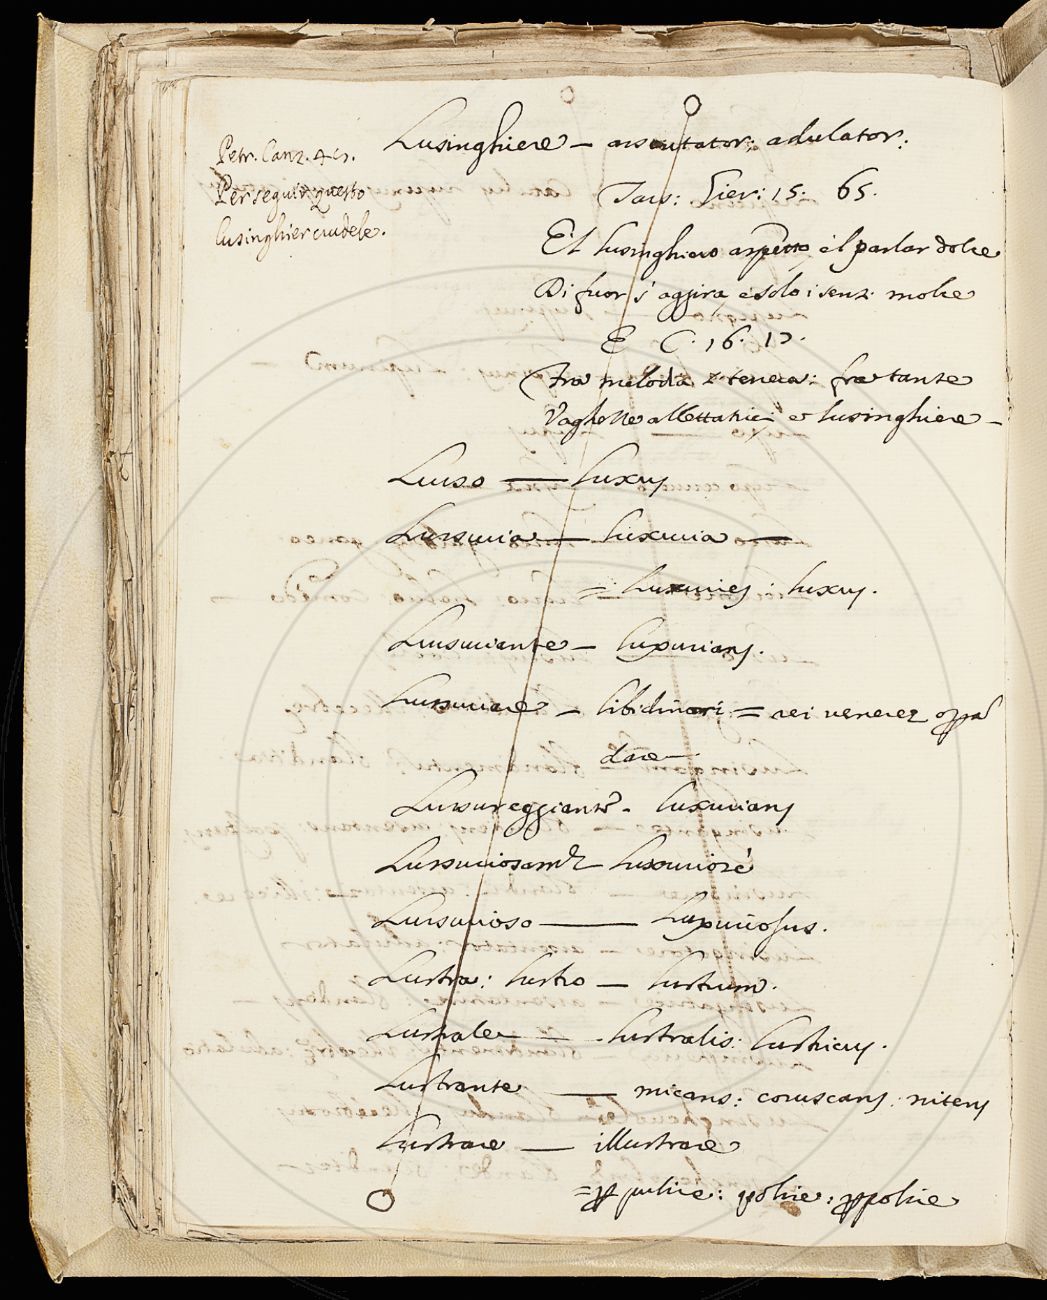 Petr. Canz. 45.
Perseguir questo
lusinghier crudele.
Lusinghiere – assentator: adulator:
Tass: Gier: 15. 65.
E'l lusinghiero aspetto, e'l parlar dolce
Di fuor s'aggira e solo i sensi molce
E C. 16. 17.
Fra melodia sì tenera: fra tante
Vaghezze allettatrici e lusinghiere –
Lusso — luxus
Lussuria — luxuria —
= luxuries: luxus.
Lussuriante – luxurians.
Lussuriare – libidinari = rei venereæ opṗã
dare –
Lussureggiante – luxurians
Lussuriosamte luxuriosè
Lussurioso — luxuriosus.
Lustra: lustro – lustrum.
Lustrale – lustralis: lustricus.
Lustrante — micans: coruscans: nitens
Lustrare — illustrare
= polire: